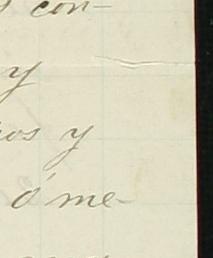 con-
y
os y
ó me-